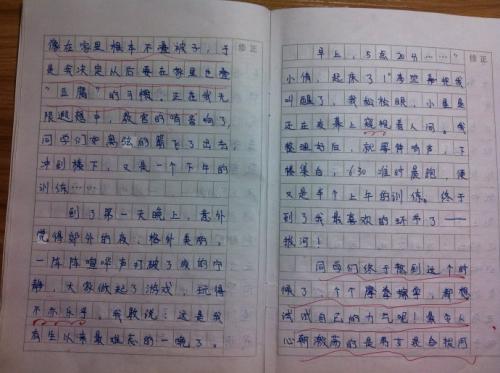 修正
像在家里根本不叠被子，于
是我决定从后要在家里也叠
"豆腐"的习惯。正在我无
限遐想中，教官的哨音响了，
同学们如离弦的箭飞了出去，
冲到楼下，又是一个下午的
训练……
到了第一天晚上，意外
觉得郊外的夜，格外美丽，
一阵阵喧哗声打破了夜的宁
静，大家做起了游戏，玩得
不亦乐乎，我敢说：这是我
有生以来最难忘的一晚了。
修正
早上，5点20分……"
小倩，起床了！"李雯把我
叫醒了，我松松眼，小星星
还在夜幕上窥视着人间。我
整理好后，就等待哨声，下
楼集合，6:30准时晨跑，便
又是半个上午的训练。终于
到了我最喜欢的环节了——
拔河！
同学们终于熬到这个时
候了，个个摩拳擦掌，都想
试试自己的力气呢！最令人
心潮澎湃的是男子混合拔河